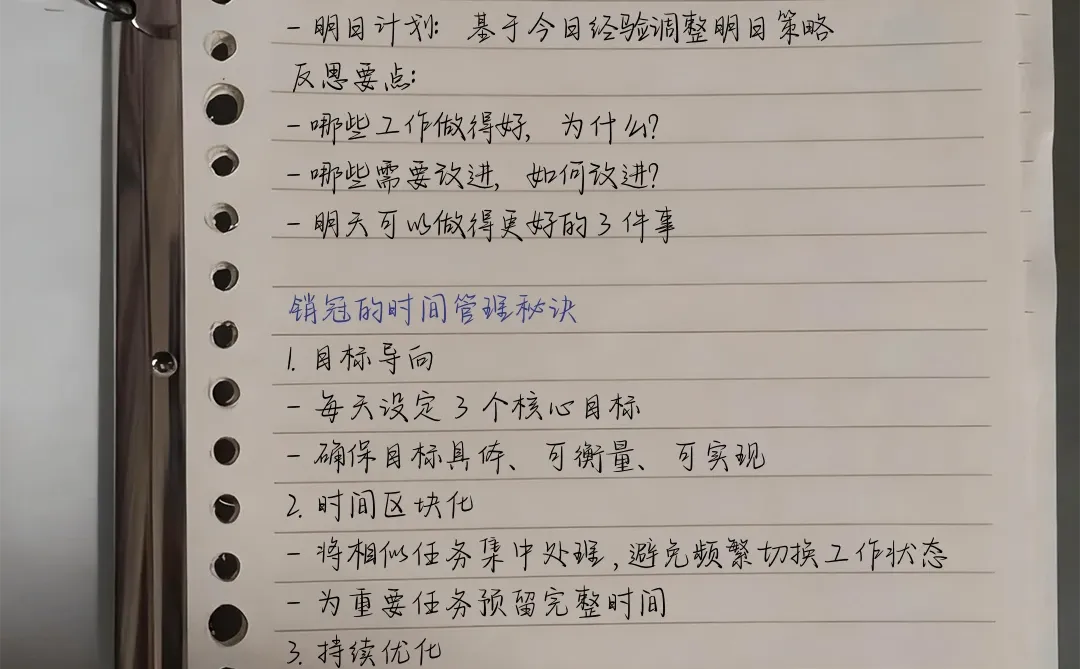 - 明日计划: 基于今日经验调整明日策略
反思要点:
- 哪些工作做得好, 为什么?
- 哪些需要改进, 如何改进?
- 明天可以做得更好的3件事
销冠的时间管理秘诀
1. 目标导向
- 每天设定3个核心目标
- 确保目标具体、可衡量、可实现
2. 时间区块化
- 将相似任务集中处理,避免频繁切换工作状态
- 为重要任务预留完整时间
3. 持续优化